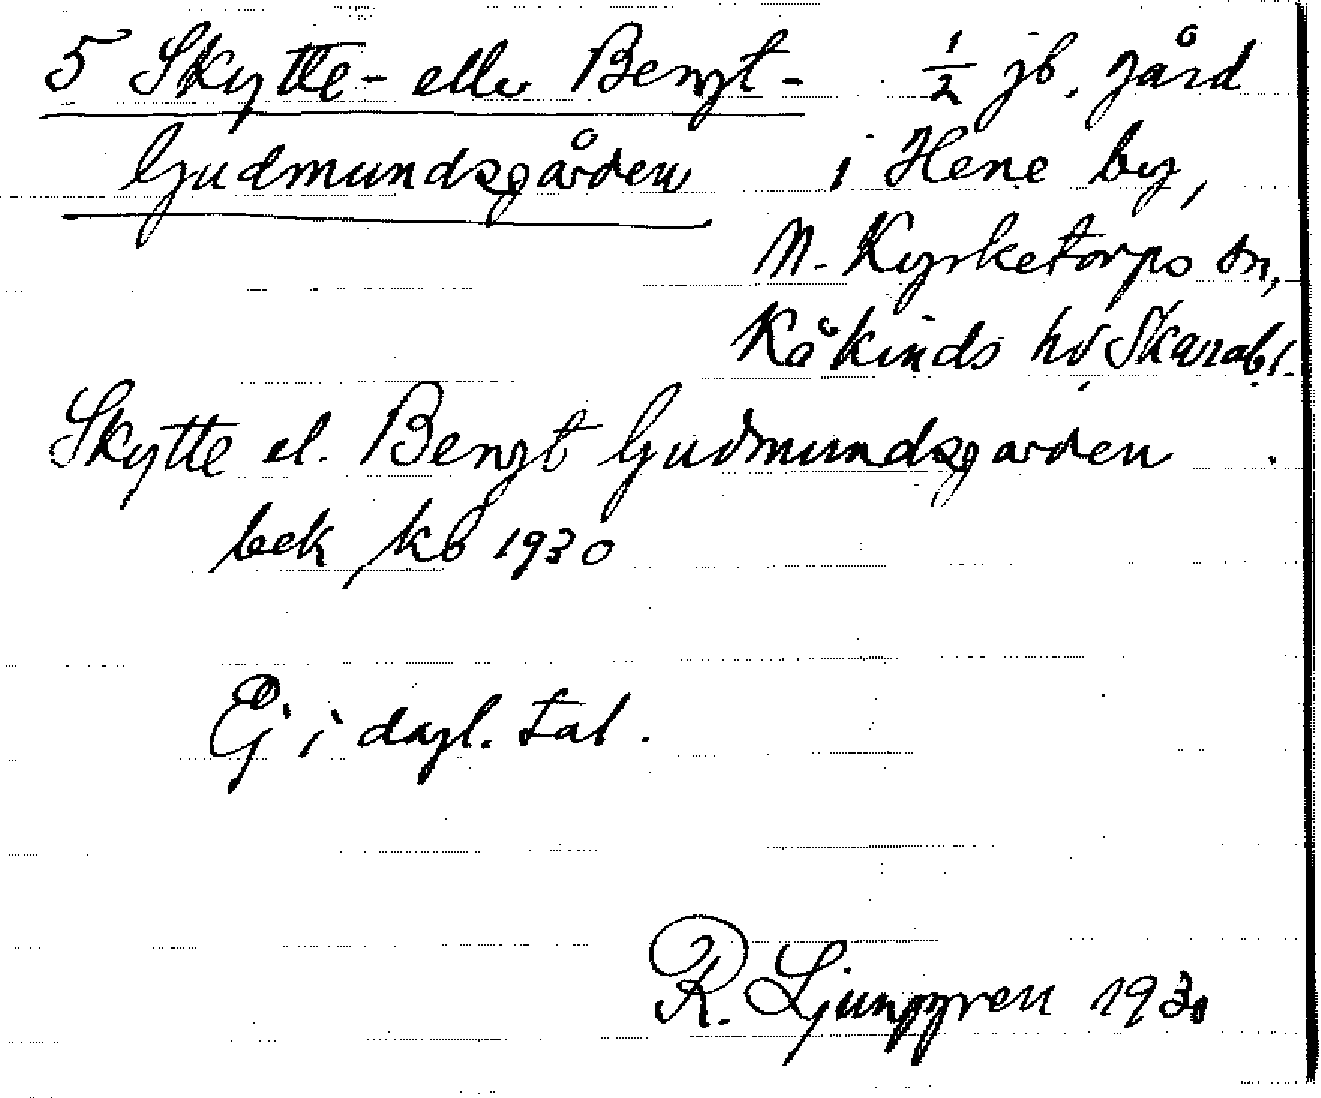 5 Skytte- eller Bengt- 1/2 jb. gård
Gudmundsgården i Hene by,
N. Kyrketorps sn,
Kåkinds hd Skarabl.
Skytte el. Bengt Gudmundsgården
bek kb 1930
Ej i dagl. tal.
R. Ljunggren 1930